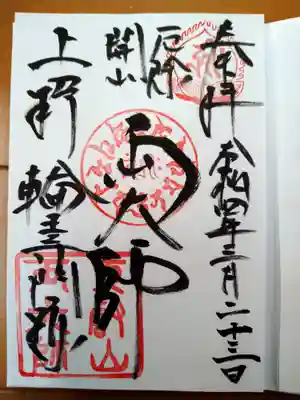 奉拝 令和四年三月二十三日
厄除
開山
両大師
上野 輪王寺門跡